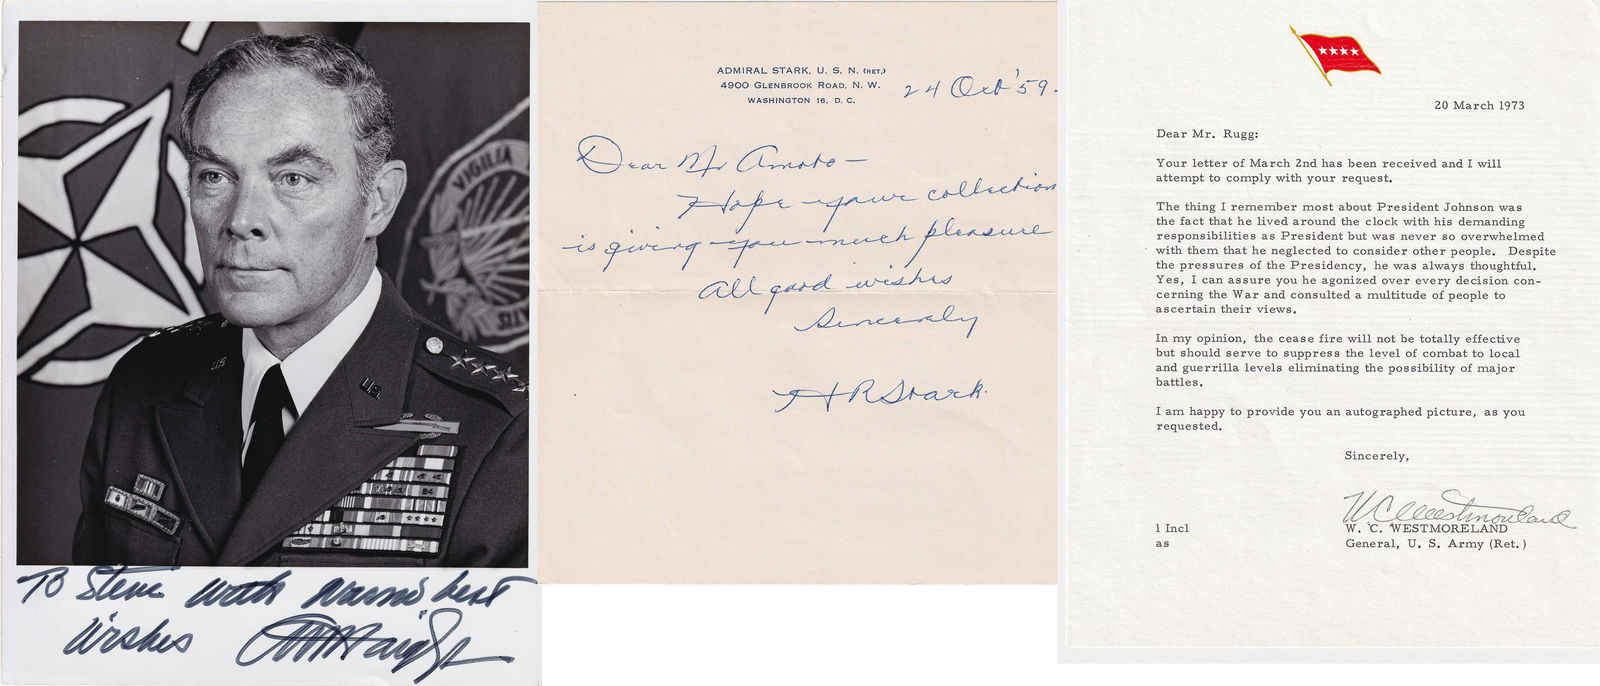 U.S.
U.S.
VIGILIA
To Steve with warmest best
wishes
ADMIRAL STARK, U. S. N. (RET.)
4900 GLENBROOK ROAD, N. W.
WASHINGTON 16, D. C.
24 Oct '59.
Dear Mr Amoto –
Hope your collection
is giving you much pleasure
All good wishes
Sincerely
H R Stark.
20 March 1973
Dear Mr. Rugg:
Your letter of March 2nd has been received and I will
attempt to comply with your request.
The thing I remember most about President Johnson was
the fact that he lived around the clock with his demanding
responsibilities as President but was never so overwhelmed
with them that he neglected to consider other people. Despite
the pressures of the Presidency, he was always thoughtful.
Yes, I can assure you he agonized over every decision con-
cerning the War and consulted a multitude of people to
ascertain their views.
In my opinion, the cease fire will not be totally effective
but should serve to suppress the level of combat to local
and guerrilla levels eliminating the possibility of major
battles.
I am happy to provide you an autographed picture, as you
requested.
Sincerely,
W C Westmoreland
W. C. WESTMORELAND
General, U. S. Army (Ret.)
1 Incl
as